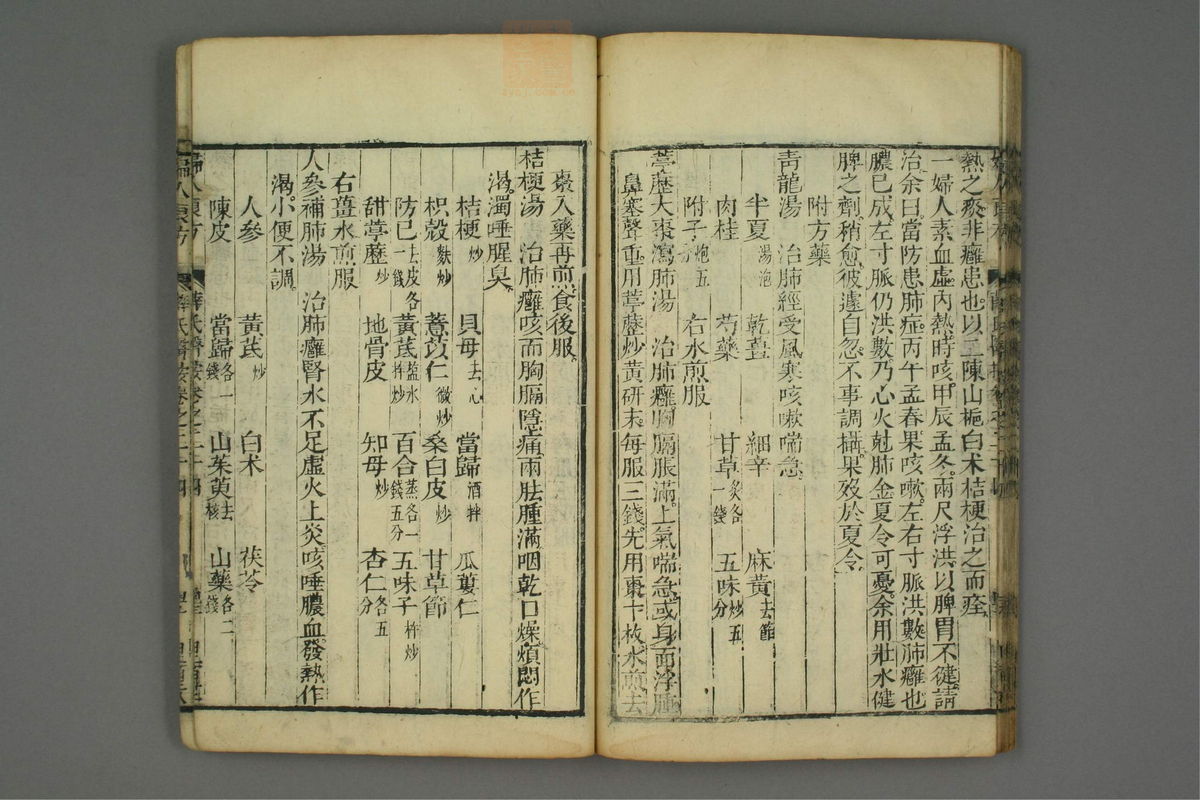 熱之瘀非癰患也以二陳山梔白术桔梗治之而痊
一婦人素血虛內熱時咳甲辰孟冬兩尺浮洪以脾胃不健請
治余曰當防患肺症丙午孟春果咳嗽左右寸脈洪數肺癰也
膿已成左寸脈仍洪數乃心火尅肺金夏令可憂余用壯水健
脾之劑稍愈彼遽自忽不事調攝果歿於夏令
附方藥
青龍湯 治肺經受風寒咳嗽喘急
半夏湯泡 乾薑 細辛 麻黃去節
肉桂 芍藥 甘草炙各一錢 五味炒五分
附子炮五分 右水煎服
葶藶大棗瀉肺湯 治肺癰胸膈脹滿上氣喘急或身面浮腫
鼻塞聲重用葶藶炒黃研末每服三錢先用棗十枚水煎去
棗入藥再煎食後服
桔梗湯 治肺癰咳而胸膈隱痛兩胠腫滿咽乾口燥煩悶作
渴濁唾腥臭
桔梗炒 貝母去心 當歸酒拌 瓜蔞仁
枳殼麩炒 薏苡仁微炒 桑白皮炒 甘草節
防已去皮各一錢 黃芪鹽水拌炒 百合蒸各一錢五分 五味子杵炒
甜葶藶炒 地骨皮 知母炒 杏仁各五分
右薑水煎服
人參補肺湯 治肺癰腎水不足虛火上炎咳唾膿血發熱作
渴小便不調
人參 黃芪炒 白术 茯苓
陳皮 當歸各一錢 山茱萸去核 山藥各二錢
婦人良方 薛氏醫按卷之二十四